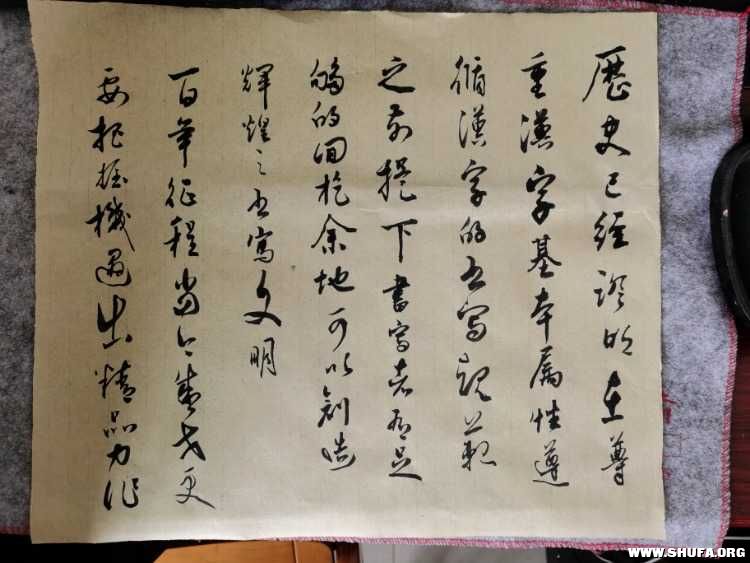 歷史已經證明在尊
重漢字基本属性遵
循漢字的书写規範
之前提下書寫者有足
夠的回旋余地可以創造
輝煌之书寫文明
百年征程當今盛世更
要把握機遇出精品力作
WWW.SHUFA.ORG